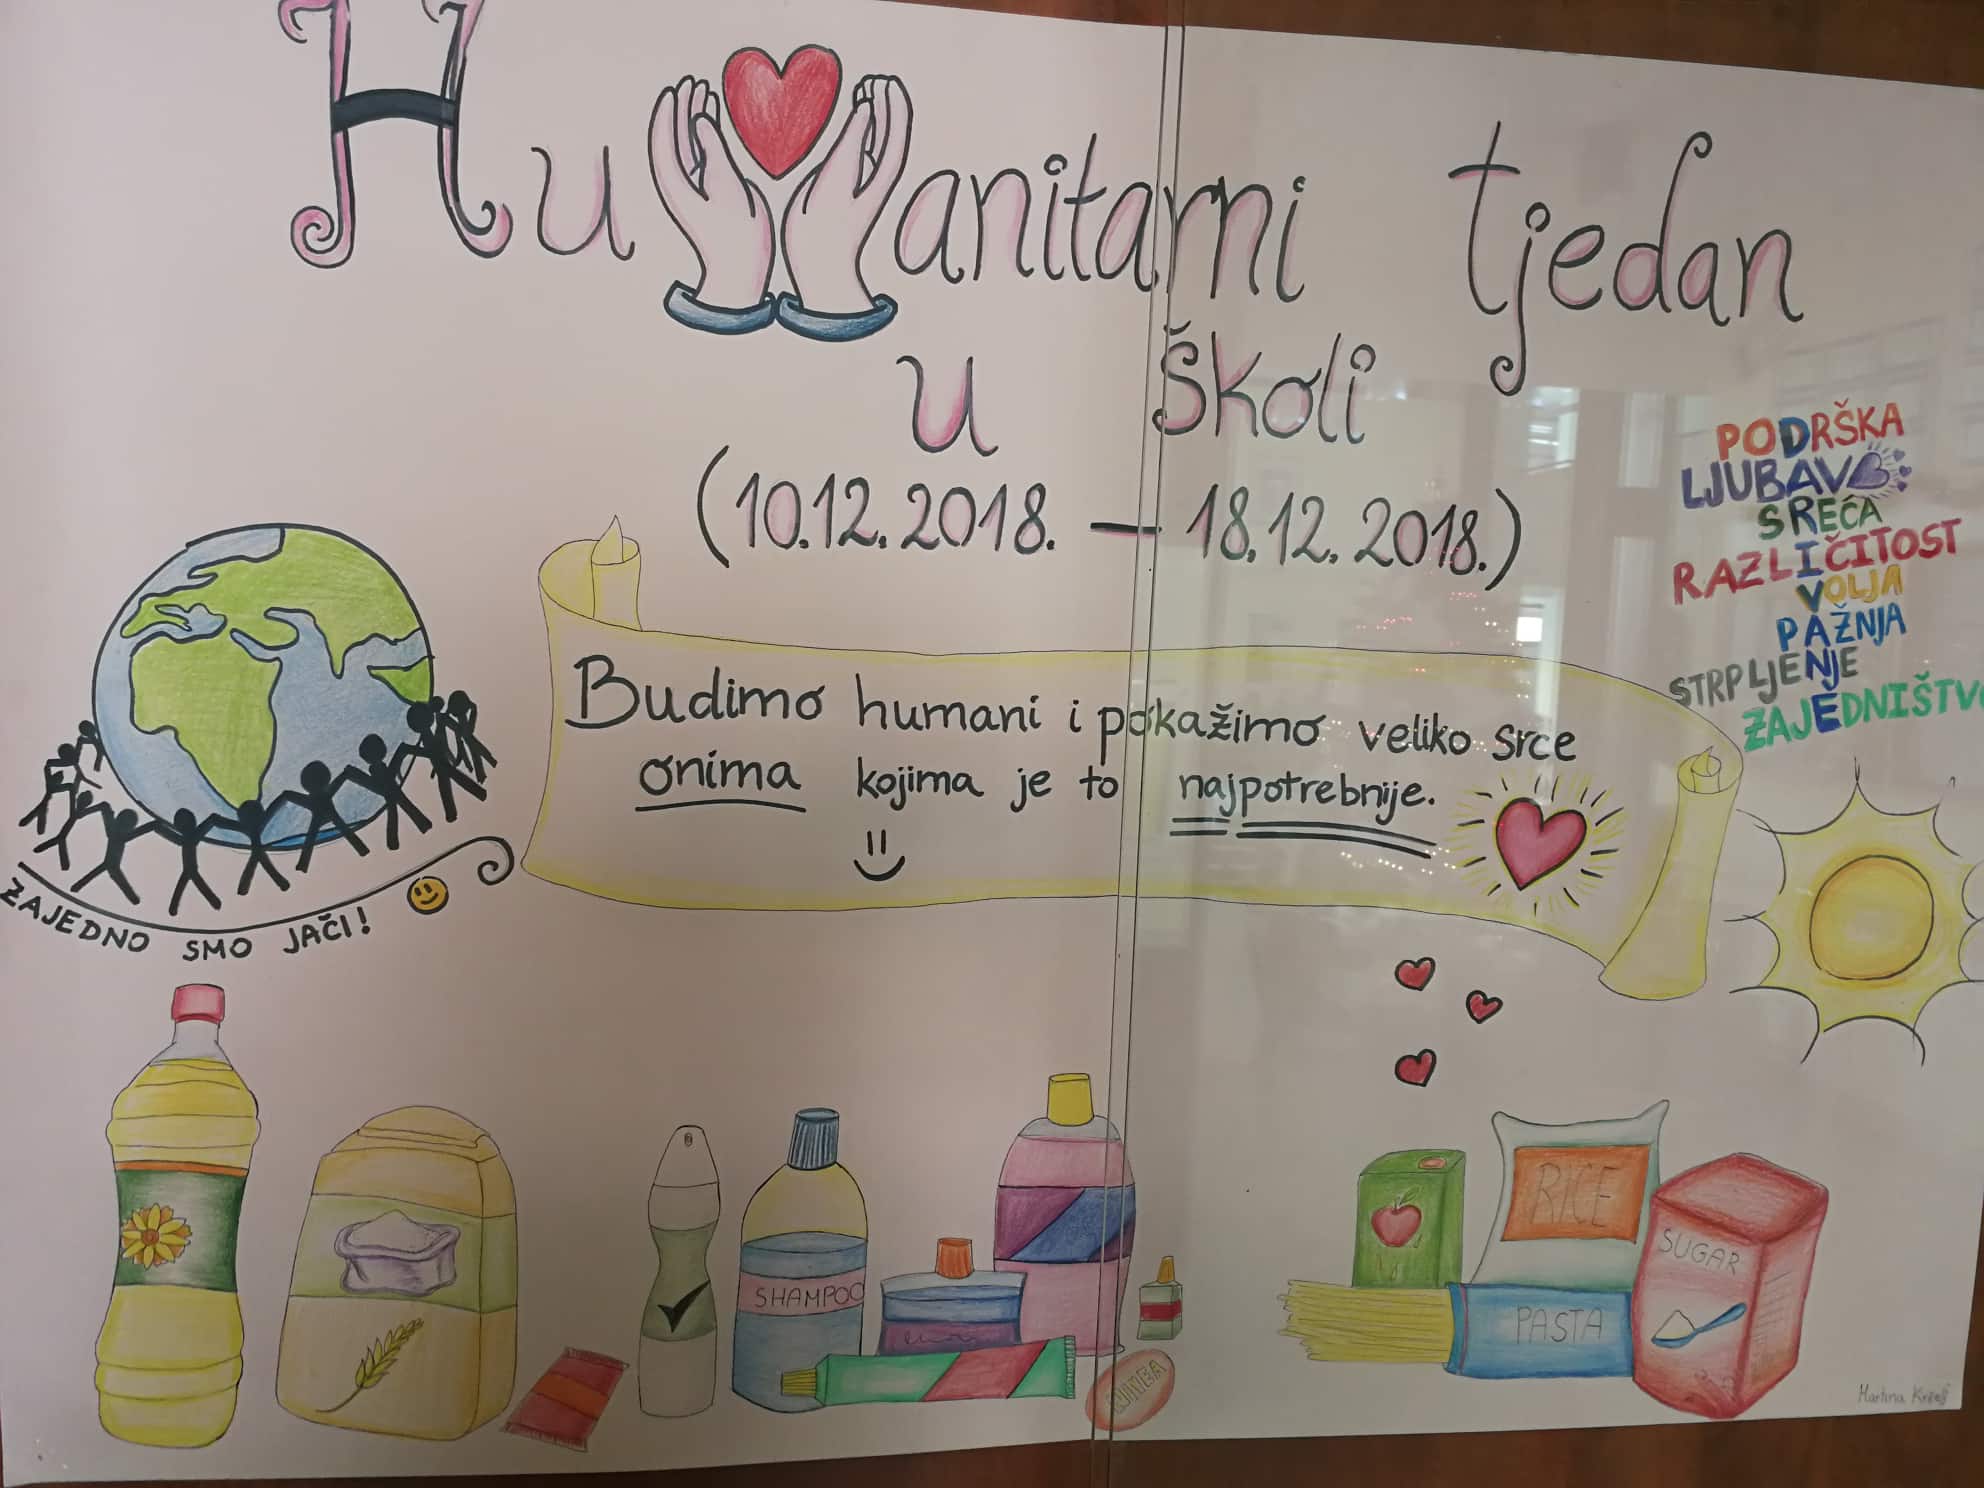 Humanitarni tjedan
u školi
(10.12.2018. — 18.12.2018.)
PODRŠKA
LJUBAV
SREĆA
RAZLIČITOST
VOLJA
PAŽNJA
STRPLJENJE
ZAJEDNIŠTVO
Budimo humani i pokažimo veliko srce
onima kojima je to najpotrebnije.
ZAJEDNO SMO JAČI!
SHAMPOO
RICE
SUGAR
PASTA
Martina